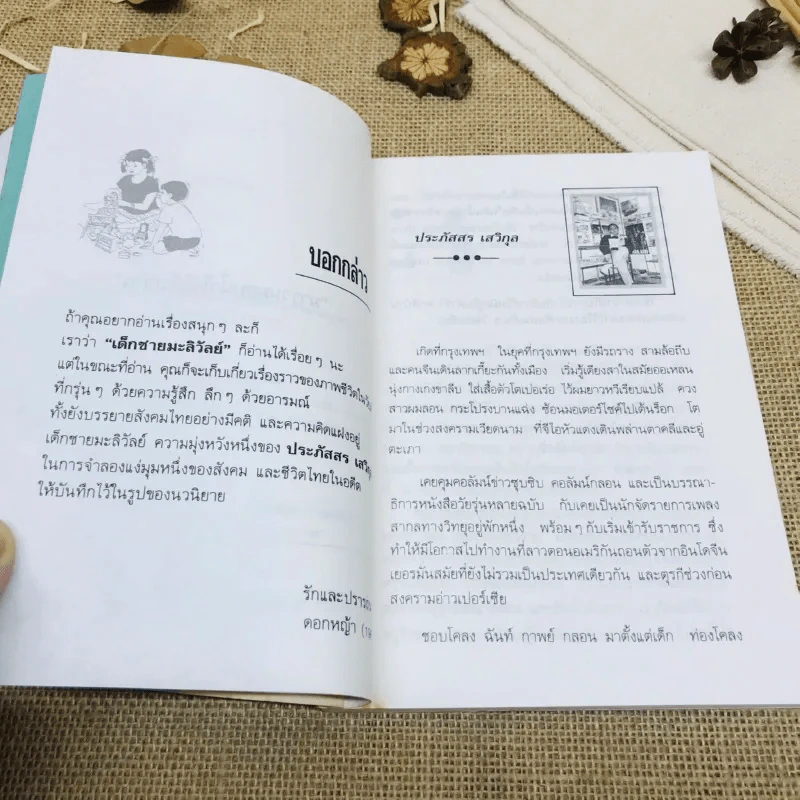 บอกกล่าว
ถ้าคุณอยากอ่านเรื่องสนุกๆ ละก็
เราว่า “เด็กชายมะลิวัลย์” ก็อ่านได้เรื่อยๆ นะ
แต่ในขณะที่อ่าน คุณก็จะเก็บเกี่ยวเรื่องราวของภาพชีวิตใน
ที่กรุ่นๆ ด้วยความรู้สึก ลึกๆ ด้วยอารมณ์
ทั้งยังบรรยายสังคมไทยอย่างมีคติ และความคิดแฝงอยู่
เด็กชายมะลิวัลย์ ความมุ่งหวังหนึ่งของ ประภัสสร
ในการจำลองแง่มุมหนึ่งของสังคม และชีวิตไทยในอดีต
ให้บันทึกไว้ในรูปของนวนิยาย
รักและ
ดอกหญ้า
ประภัสสร เสวิกุล
เกิดที่กรุงเทพฯ ในยุคที่กรุงเทพฯ ยังมีรถราง สามล้อถีบ
และคนจีนเดินลากเกี๊ยะกันทั้งเมือง เริ่มรู้เดียงสาในสมัยออเหลน
นุ่งกางเกงขาลีบ ใส่เสื้อตัวโตเปอเร่อ ไว้ผมยาวหวีเรียบแปล้ ควง
สาวผมลอน กระโปรงบานแฉ่ง ซ้อนมอเตอร์ไซค์ไปเต้นร็อก โต
มาในช่วงสงครามเวียดนาม ที่จีไอหัวแดงเดินพล่านตาคลีและอู่
ตะเภา
เคยคุมคอลัมน์ข่าวซุบซิบ คอลัมน์กลอน และเป็นบรรณา-
ธิการหนังสือวัยรุ่นหลายฉบับ กับเคยเป็นนักจัดรายการเพลง
สากลทางวิทยุอยู่พักหนึ่ง พร้อมๆ กับเริ่มเข้ารับราชการ ซึ่ง
ทำให้มีโอกาสไปทำงานที่ลาวตอนอเมริกันถอนตัวจากอินโดจีน
เยอรมันสมัยที่ยังไม่รวมเป็นประเทศเดียวกัน และตุรกีช่วงก่อน
สงครามอ่าวเปอร์เซีย
ชอบโคลง ฉันท์ กาพย์ กลอน มาตั้งแต่เด็ก ท่องโคลง